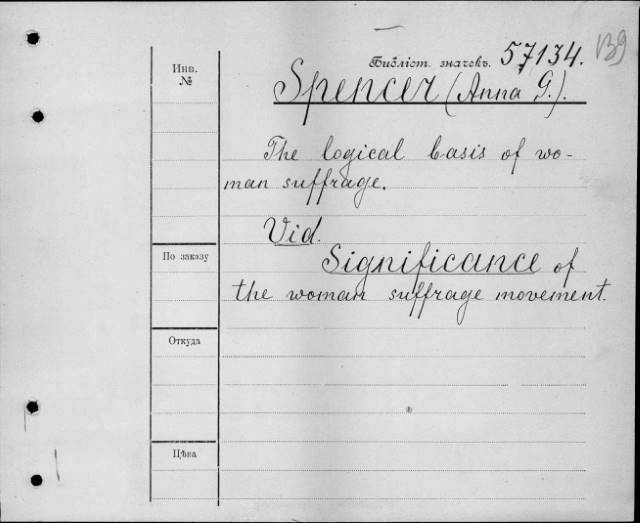 Инв.
№
Библіот. значекъ. 57134.
Spencer (Anna G.).
The logical basis of wo-
man suffrage.
Vid.
Significance of
the woman suffrage movement.
По заказу
Откуда
Цѣна